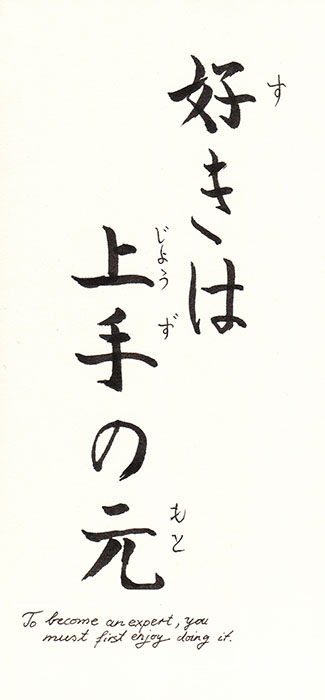 好きは
す
上手の元
じょうず
もと
To become an expert, you
must first enjoy doing it.